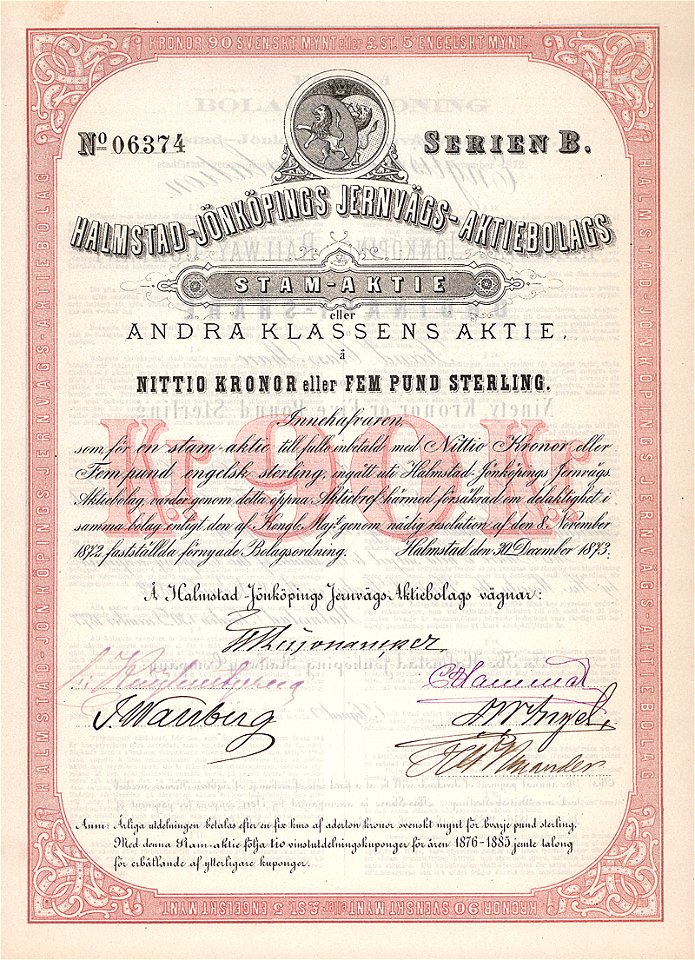 KRONOR 90 SVENSKT MYNT eller £.ST. 5 ENGELSKT MYNT.
No 06374
SERIEN B.
HALMSTAD-JÖNKÖPINGS JERNVÄGS-AKTIEBOLAGS
STAM-AKTIE
eller
ANDRA KLASSENS AKTIE,
å
NITTIO KRONOR eller FEM PUND STERLING.
Kr. 90 Kr.
Innehafvaren,
som för en stam-aktie till fullo inbetald med Nittio Kronor eller
Fem pund engelsk sterling, ingått uti Halmstad-Jönköpings Jernvägs
Aktiebolag, varder genom detta öppna Aktiebref härmed försäkrad om delaktighet i
samma bolag, enligt den af Kongl. Maj:t genom nådig resolution af den 8. November
1872 fastställda förnyade Bolagsordning. Halmstad den 30 December 1873.
Å Halmstad-Jönköpings Jernvägs-Aktiebolags vägnar:
Anm: Årliga utdelningen betalas efter en fix kurs af aderton kronor svenskt mynt för hvarje pund sterling.
Med denna Stam-aktie följa tio vinstutdelningskuponger för åren 1876-1885 jemte talong
för erhållande af ytterligare kuponger.
HALMSTAD-JÖNKÖPINGS JERNVÄGS-AKTIEBOLAG
HALMSTAD-JÖNKÖPINGS JERNVÄGS-AKTIEBOLAG
KRONOR 90 SVENSKT MYNT eller £.ST. 5 ENGELSKT MYNT.